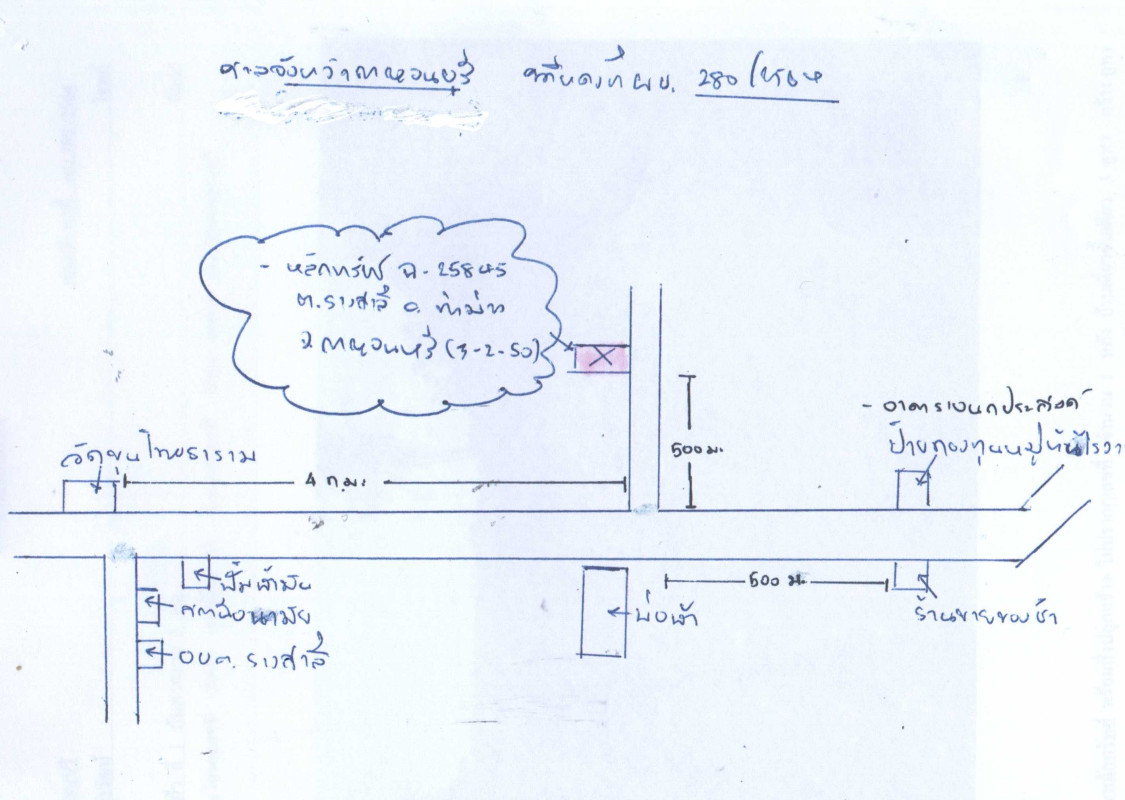 ศาลจังหวัดกาญจนบุรี คดีแดงที่ ผบ. 280/
- หลักทรัพย์ ฉ. 25845
ต.รางสาลี่ อ. ท่าม่วง
จ.กาญจนบุรี (3-2-50)
500 ม.
- อาคารเอนกประสงค์
ป้ายกองทุนหมู่บ้าน
วัดขุนไทยธาราม
4 ก.ม.
ปั๊มน้ำมัน
สถานีอนามัย
อบต. รางสาลี่
บ่อน้ำ
500 ม.
ร้านขายของชำ